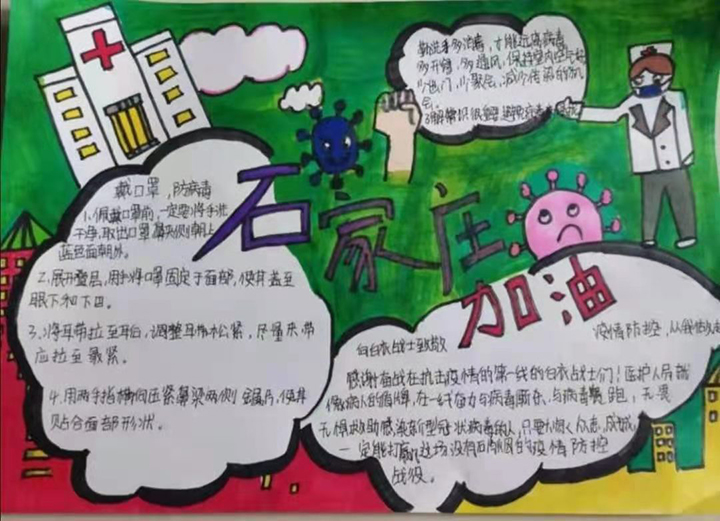 勤洗手多消毒，才能远离病毒
多开窗，多通风，保持室内空气
少出门，少聚会，减少传染的机
会。
石家庄
加油
戴口罩，防病毒
1.佩戴口罩前，一定要将手洗
干净，取出口罩鼻夹侧朝上
蓝色面朝外。
2.展开叠层，用手将口罩固定于面部，使其盖至
眼下和下巴。
3.将耳带拉至耳后，调整耳带松紧，尽量夹带
应拉至最紧。
4.用两手指横向压紧鼻梁两侧金属片，使其
贴合面部形状。
疫情防控，从我
向白衣战士致敬
感谢奋战在抗击疫情的第一线的白衣战士们！医护人员就
像病人的盾牌，在一线奋力与病毒斯杀，与病毒赛跑，无畏
无惧救助感染新型冠状病毒的人，只要大家众志成城，
一定能打赢这场没有硝烟的疫情防控
战役。